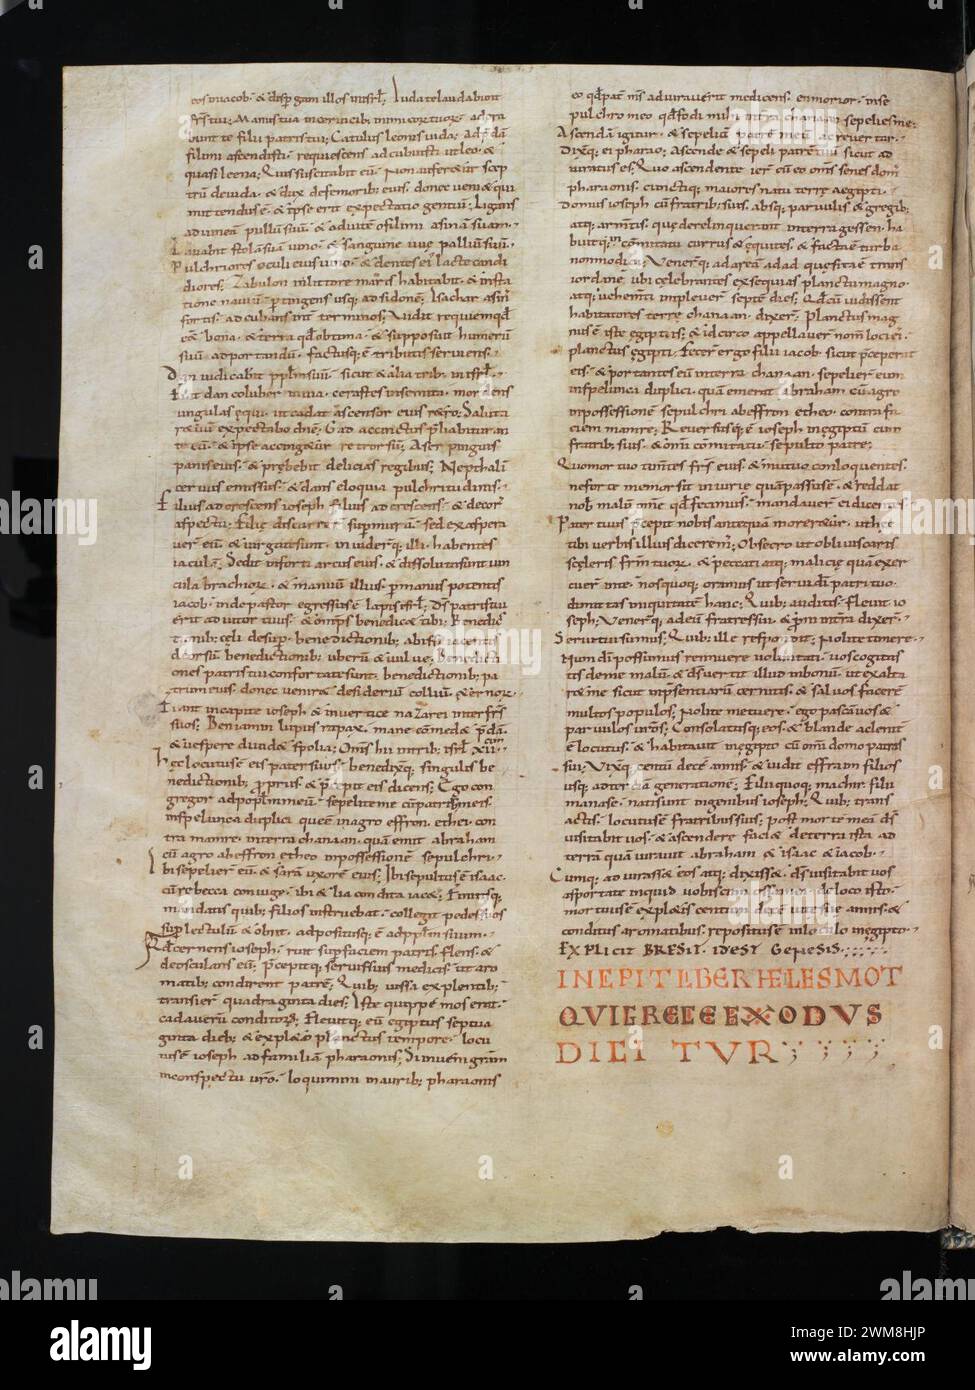 eos in iacob · & disp gam illos in isrł; Iuda te laudabunt
frs tui; Manus tua in ceruicib; inimicor tuor · adora
bunt te filii patris tui; Catulus leonis iuda; Ad p̄dā
fili mi ascendisti · requiescens accubuisti ut leo · &
quasi leena; Quis suscitabit eū; Non auferetur scep
trū de iuda · & dux de femorib; eius · donec ueniat qui
mittendus ē · & ipse erit expectatio gentiū; Ligans
ad uineā pullū suū · & ad uitē o fili mi asinā suam ·
Lauabit stolā suā uino · & sanguine uuę palliū suū ·
Pulchriores oculi eius uino · & dentes ei' lacte candi
diores; Zabulon in littore maris habitabit · & in sta
tione nauiū p tingens usq; ad sidonē; Isachar asin'
fortis · accubans int terminos; Vidit requiem qd
eēt bona · & terra qd optima · & supposuit humerū
suū ad portandū · factusq; ē tributis seruiens ·
Dan iudicabit pplm suū · sicut & alia trib; in isrł;
Fiat dan coluber in uia · cerastes in semita · mordens
ungulas equi · ut cadat ascensor eius retro; Saluta
re tuū expectabo dnē; Gad accinctus pliabitur an
te eū · & ipse accingetur retrorsū; Aser pinguis
panis eius · & prębebit delicias regibus; Nepthali
ceruus emissus · & dans eloquia pulchritudinis ·
Filius adcrescens ioseph filius adcrescens · & decor'
aspectu; Filię discurrer sup murum · sed exaspera
uer eū & iurgati sunt · inuiderq; illi habentes
iacula; Sedit in forti arcus eius · & dissoluta sunt uin
cula brachior · & manuū illius p manus potentis
iacob · inde pastor egressus ē lapis isrł; Ds patris tui
erit adiutor tuus · & omps benedicet tibi · Benedic
tionib; cęli desup · benedictionib; abissi iacentis
deorsū benedictionib; uberū & uuluę; Benedicti
ones patris tui confortatę sunt · benedictionib; pa
trum eius · donec ueniret desideriū colliū · & ernor ·
Fiant in capite ioseph · & in uertice nazarei inter frs
suos; Beniamin lupus rapax · mane comedet p̄dā ·
& uespere diuidet spolia; Oms hii in trib; isrł xii ·
Hęc locutus ē eis pater suus · benedixq; singulis be
nedictionib; propriis · & p̄cepit eis dicens; Ego con
gregor ad poplm meū · sepelite me cū patrib; meis ·
in spelunca duplici quę ē in agro effron · ethei · con
tra mamre · in terra chanaan · quā emit abraham
cū agro ab effron etheo in possessionē sepulchri ·
Ibi sepelier eū · & sarā uxorē eius; Ibi sepultus ē isaac ·
cū rebecca coniuge · ibi & lia condita iacet; Finitisq;
mandatis quib; filios instruebat · collegit pedes suos
sup lectulū & obiit · adpositusq; ē ad pplm suum ·
Qd cernens ioseph · ruit sup faciem patris flens · &
deosculans eū; p̄cepitq; seruis suis medicis ut aro
matib; condirent patrē; Quib; iussa explentib;
transier quadraginta dies; Iste quippe mos erat
cadauerū conditor; Fleuitq; eū egiptus septua
ginta dieb; & expleto planctus tempore · locu
tus ē ioseph ad familiā pharaonis; Si inueni gram
in conspectu uro · loquimini in aurib; pharaonis
eo qd pat ms adiurauerit me dicens · en morior · in se
pulchro meo qd fodi mihi in terra chanaan sepelies me;
Ascendā igitur · & sepeliā patrē meū ac reuertar ·
Dixq; ei pharao; Ascende & sepeli patrē tuū sicut ad
iuratus es; Quo ascendente ier cū eo oms senes dom'
pharaonis · cunctiq; maiores natu terrę aegipti ·
Domus ioseph cū fratrib; suis · absq; paruulis & gregib;
atq; armtis · quę derelinquerant in terra gessen · ha
buit q; in comitatu currus & equites · & facta ē turba
non modica; Venerq; ad aream adad quę sita ē trans
iordanē · ubi celebrantes exsequias planctu magno
atq; uehemti impleuer septē dies; Qd cū uidissent
habitatores terrę chanaan · dixer; Planctus mag
nus ē iste egiptiis; & idcirco appellauer nom̄ loci ei' ·
planctus egipti; Fecer ergo filii iacob · sicut p̄ceperat
eis · & portantes eū in terra chanaan · sepelier eum
in spelunca duplici · quā emerat abraham cū agro
in possessionē sepulchri ab effron etheo · contra fa
ciem mamre; Reuersusq; ē ioseph in egiptū cum
fratrib; suis · & omi comitatu · sepulto patre;
Quo mortuo timtes frs eius · & mutuo conloquentes
ne forte memor sit iniurię quā passus ē · & reddat
nob' malū omne qd fecimus · mandauer ei dicentes ·
Pater tuus p̄cepit nobis antequā moreretur · ut hęc
tibi uerbis illius dicerem'; Obsecro ut obliuiscaris
sceleris frm tuor · & peccati atq; malicię quā exer
cuer in te · nos quoq; oramus ut seruis di patri tuo ·
dimittas iniquitatē hanc; Quib; auditis · fleuit io
seph; Venerq; ad eū fratres sui · & proni in tra dixer ·
Serui tui sumus; Quib; ille respondit; Nolite timere ·
Num di possumus renuere uoluntati · uos cogitas
tis de me malū · & ds uertit illud in bonū · ut exalta
ret me sicut inpsentiarū cernitis · & saluos faceret
multos populos; Nolite metuere · ego pascā uos &
paruulos uros; Consolatusq; eos · & blande ac leniter
ē locutus · & habitauit in egipto cū omi domo patris
sui; Vixq; centū decē annis · & uidit effraim filios
usq; ad terciā generationē; Filii quoq; machir · filii
manase · nati sunt in genibus ioseph; Quib; trans
actis · locutus ē fratribus suis; post mortē meā ds
uisitabit uos · & ascendere faciet de terra ista ad
terrā quā iurauit abraham & isaac & iacob ·
Cumq; adiurasset eos atq; dixisset · ds uisitabit uos
asportate inquid uobiscum ossa mea de loco isto ·
mortuus ē expletis centum decē uitę suę annis · &
conditus aromatibus · repositus ē in loculo in egipto ·
EXPLICIT BRESIT · IDEST GENESIS
INCIPIT LIBER HELLESMOT
QVI GRECE EXODVS
DICITVR
alamy
Image ID: 2WM8HJP
www.alamy.com